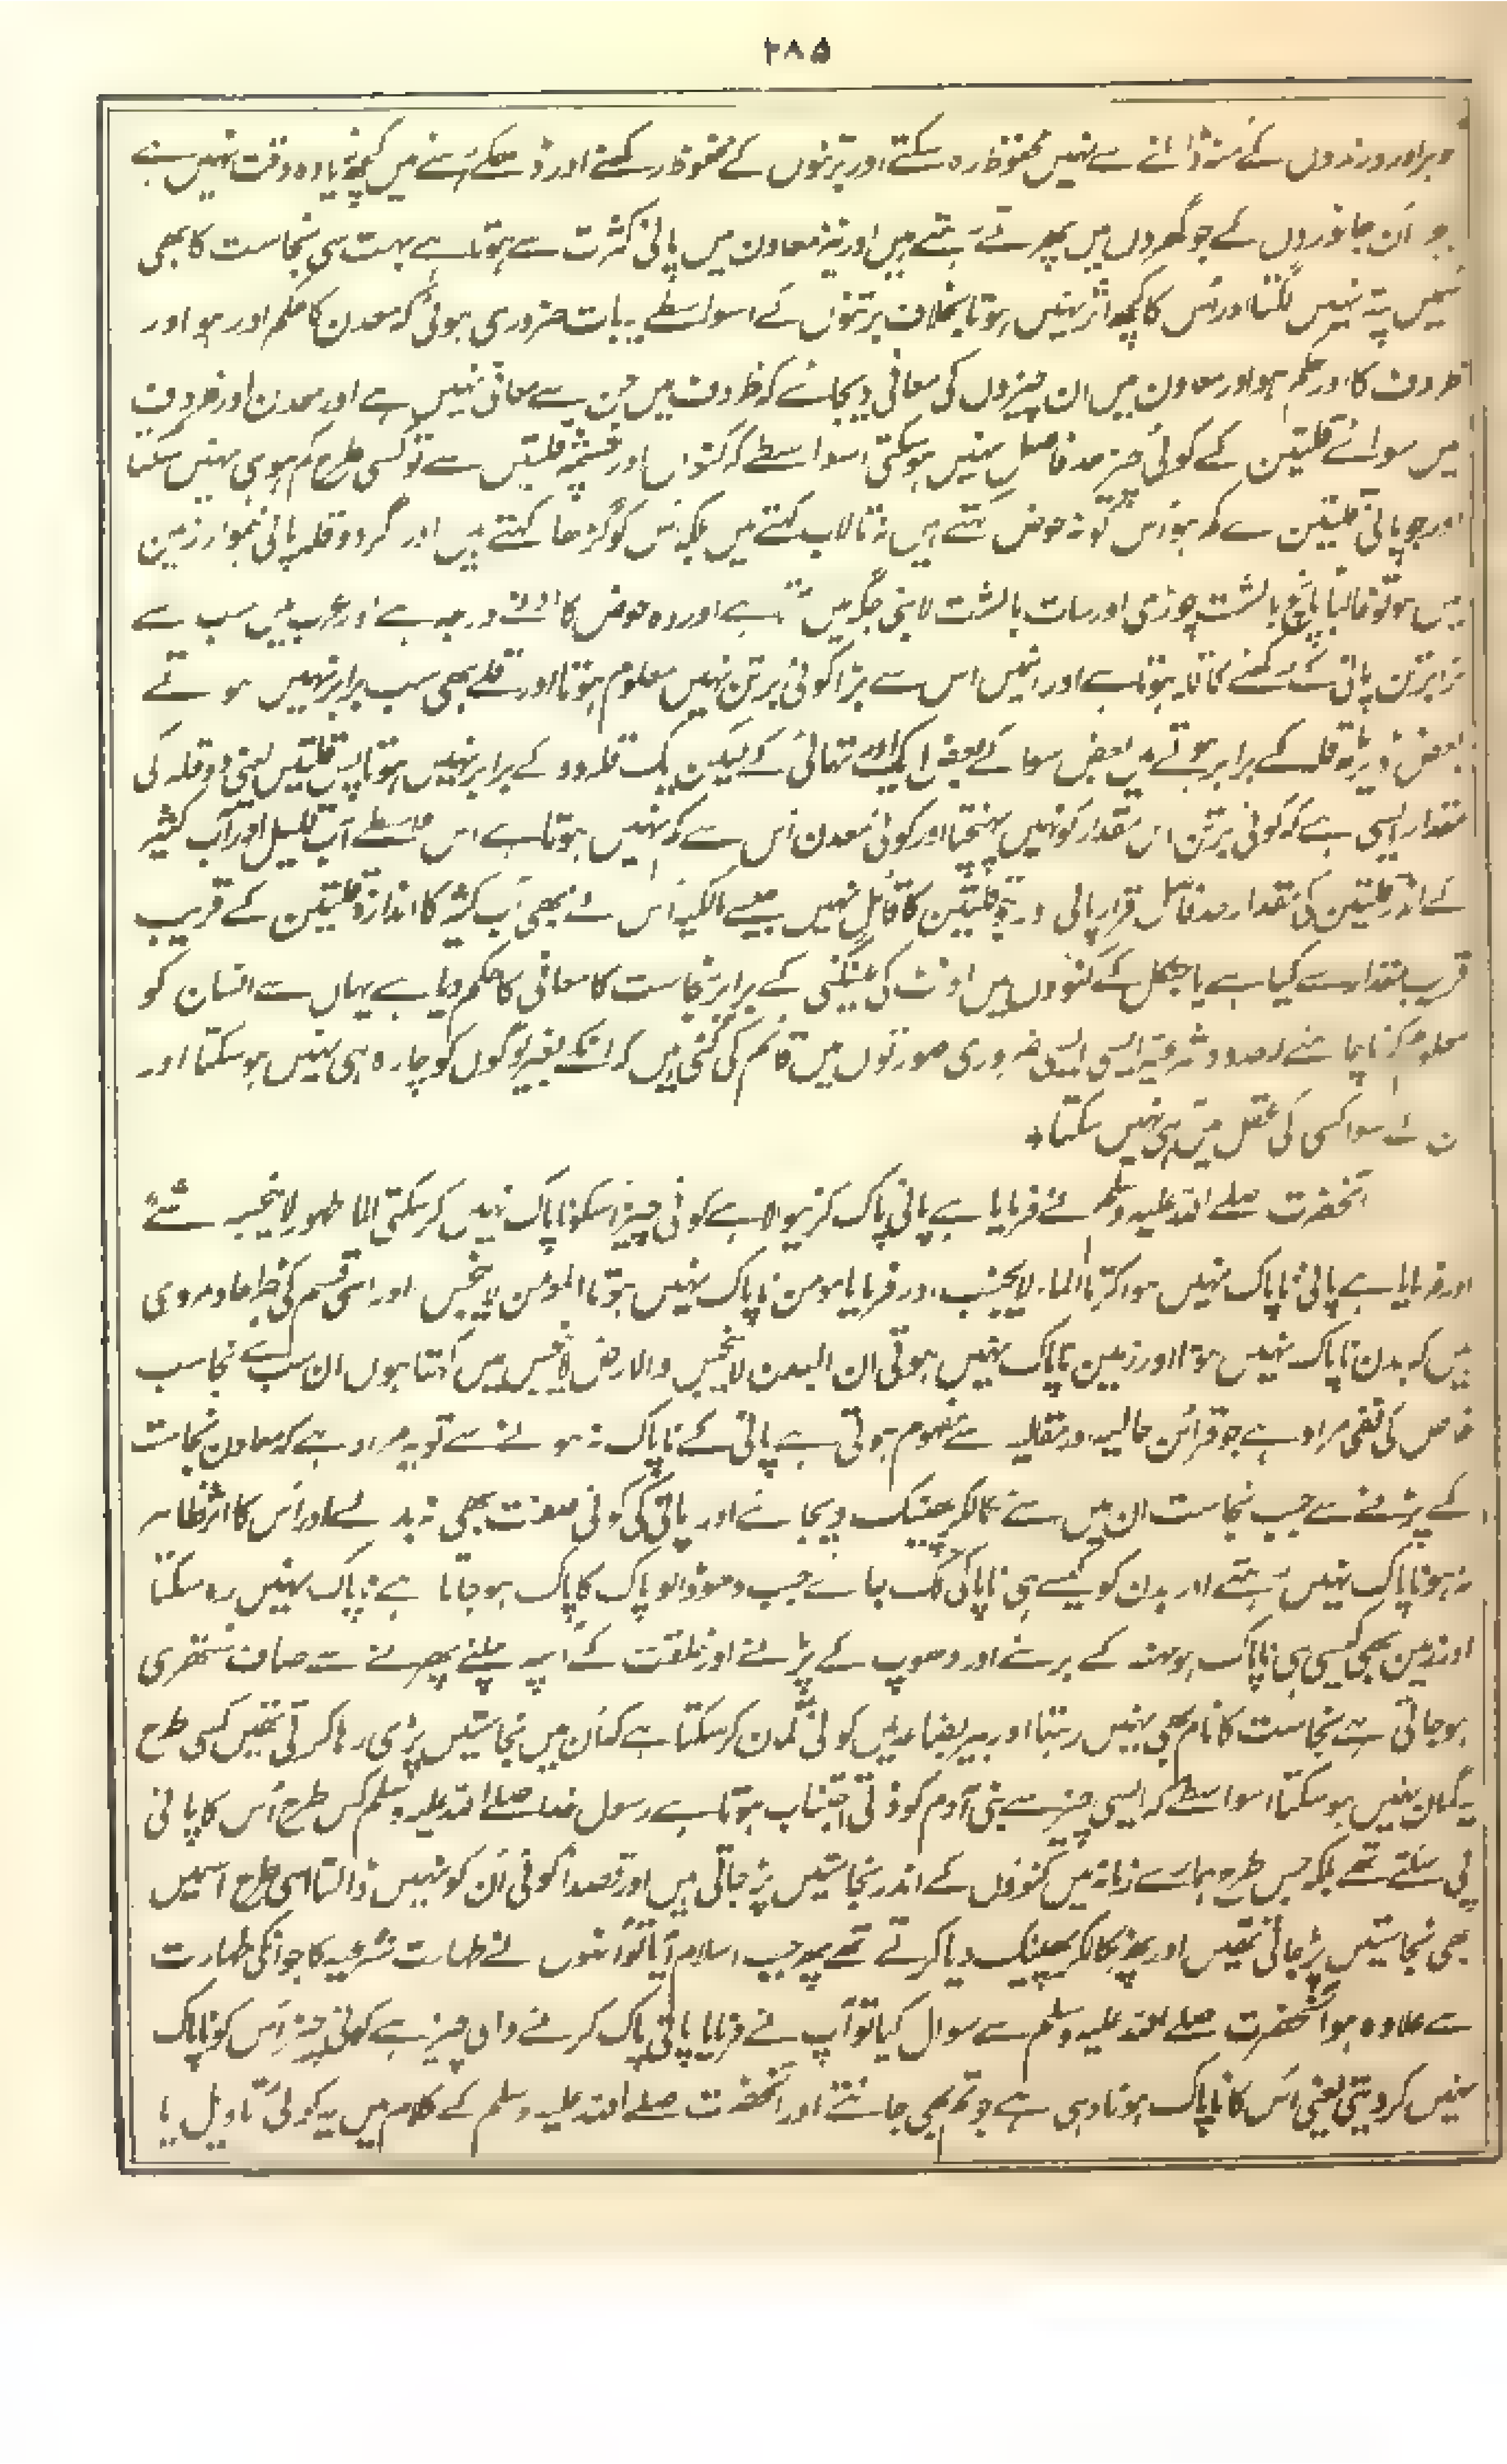 ۲۸۵
اور درندوں کے منہ ڈالنے سے نہیں محفوظ رہ سکتے اور برتنوں کے محفوظ رکھنے اور ڈھکے رہنے میں کچھ زیادہ دقت نہیں ہے
بجز اُن جانوروں کے جو گھروں میں پھرتے رہتے ہیں اور نیز معاون میں پانی کثرت سے ہوتا ہے بہت سی نجاست کا بھی
نہیں پتہ نہیں لگتا اور اس کا کچھ اثر نہیں ہوتا بخلاف برتنوں کے اسواسطے یہ بات ضروری ہوئی کہ معدن کا حکم اور ہو اور
ظروف کا اور حکم ہو اور معاون میں ان چیزوں کی معافی دیجائے کہ ظروف میں جن سے معافی نہیں ہے اور معدن اور ظروف
میں سوائے قلتین کے کوئی چیز حد فاصل نہیں ہو سکتی اسواسطے کہ کنواں اور چشمہ قلتین سے تو کسی طرح کم ہو ہی نہیں سکتا
اور جو پانی قلتین سے کم ہو اس کو نہ حوض کہتے ہیں نہ تالاب کہتے ہیں بلکہ اس کو گڑھا کہتے ہیں اور گر دو قلہ پانی ہموار زمین
میں ہو تو غالباً پانچ بالشت چوڑی اور سات بالشت لانبی جگہ میں ہے اور وہ حوض کا ادنےٰ درجہ ہے اور عرب میں سب سے
بڑا برتن پانی کے رکھنے کا قلہ ہوتا ہے اور انہیں اس سے بڑا کوئی برتن نہیں معلوم ہوتا اور قلے بھی سب برابر نہیں ہوتے
بعض ڈیڑھ قلہ کے برابر ہوتے ہیں بعض سوا کے بعض ایک اور تہائی کے لیکن یک قلہ دو کے برابر نہیں ہوتا پس قلتین یعنی دو قلہ کی
مقدار ایسی ہے کہ کوئی برتن اس مقدار کو نہیں پہنچتا اور کوئی معدن اُس سے کم نہیں ہوتا ہے اس واسطے آب قلیل اور آب کثیر
کے اندر قلتین کی مقدار حد فاصل قرار پائی اور جو قلتین کا قائل نہیں جیسے مالکیہ اس نے بھی آب کثیر کا اندازہ قلتین کے قریب
قریب مقدار سے کیا ہے یا جنگل کے کنووں میں اونٹ کی مینگنی کے برابر نجاست کا معافی کا حکم دیا ہے یہاں سے انسان کو
معلوم کرنا چاہئے حدود شرعیہ ایسی ایسی ضروری صورتوں میں قائم کی گئی ہیں کہ انکے بغیر لوگوں کو چارہ ہی نہیں ہو سکتا اور
ان کے سوا کسی کی عقل میں ہی نہیں سکتا٭
آنحضرت صلے اللہ علیہ وسلم نے فرمایا ہے پانی پاک کرنیوالا ہے کوئی چیز اسکو ناپاک نہیں کر سکتی الماء طہور لا ینجسہ شئے
اور فرمایا ہے پانی ناپاک نہیں ہوا کرتا الماء لا یجنب اور فرمایا مومن ناپاک نہیں ہوتا المؤمن لا ینجس اور اسی قسم کی مروی
ہیں کہ بدن ناپاک نہیں ہوتا اور زمین ناپاک نہیں ہوتی ان البدن لا ینجس والارض لا ینجس میں کہتا ہوں ان سب سے نجاست
خاص کی نفی مراد ہے جو قرائن حالیہ اور مقالیہ سے مفہوم ہوتی ہے پانی کے ناپاک نہ ہونے سے تو یہ مراد ہے کہ معاون نجاست
کے پڑنے سے جب نجاست ان میں سے نکالکر پھینک دیجائے اور پانی کی کوئی صفت بھی نہ بدلے اور اُس کا اثر ظاہر
نہ ہو ناپاک نہیں رہتے اور بدن کو کیسے ہی ناپاکی لگ جائے جب دھو ڈالو پاک کا پاک ہو جاتا ہے ناپاک نہیں رہ سکتا
اور زمین بھی کیسی ہی ناپاک ہو مینہ کے برسنے اور دھوپ کے پڑنے اور خلقت کے اُسپر چلنے پھرنے سے صاف ستھری
ہو جاتی ہے نجاست کا نام بھی نہیں رہتا اور بیر بضاعہ میں کوئی گمان کر سکتا ہے کہ اُن میں نجاستیں پڑی رہا کرتی تھیں کسی طرح
یہ گمان نہیں ہو سکتا اسواسطے کہ ایسی چیز سے بنی آدم کو ذاتی اجتناب ہوتا ہے رسول خدا صلے اللہ علیہ وسلم کس طرح اُس کا پانی
پی سکتے تھے بلکہ جس طرح ہمارے زمانہ میں کنووں کے اندر نجاستیں پڑ جاتی ہیں اور قصداً کوئی اُن کو نہیں ڈالتا اسی طرح اسمیں
بھی نجاستیں پڑ جاتی تھیں اور پھر نکالکر پھینک دیا کرتے تھے پھر جب اسلام آیا تو اُنہوں نے طہارت شرعیہ کا جو انکی طہارت
سے علاوہ ہو آنحضرت صلے اللہ علیہ وسلم سے سوال کیا تو آپ نے فرمایا پانی پاک کرنے والی چیز ہے کوئی چیز اس کو ناپاک
نہیں کر دیتی یعنی اُس کا ناپاک ہونا وہی ہے جو تم بھی جانتے اور آنحضرت صلے اللہ علیہ وسلم کے کلام میں یہ کوئی تاویل یا